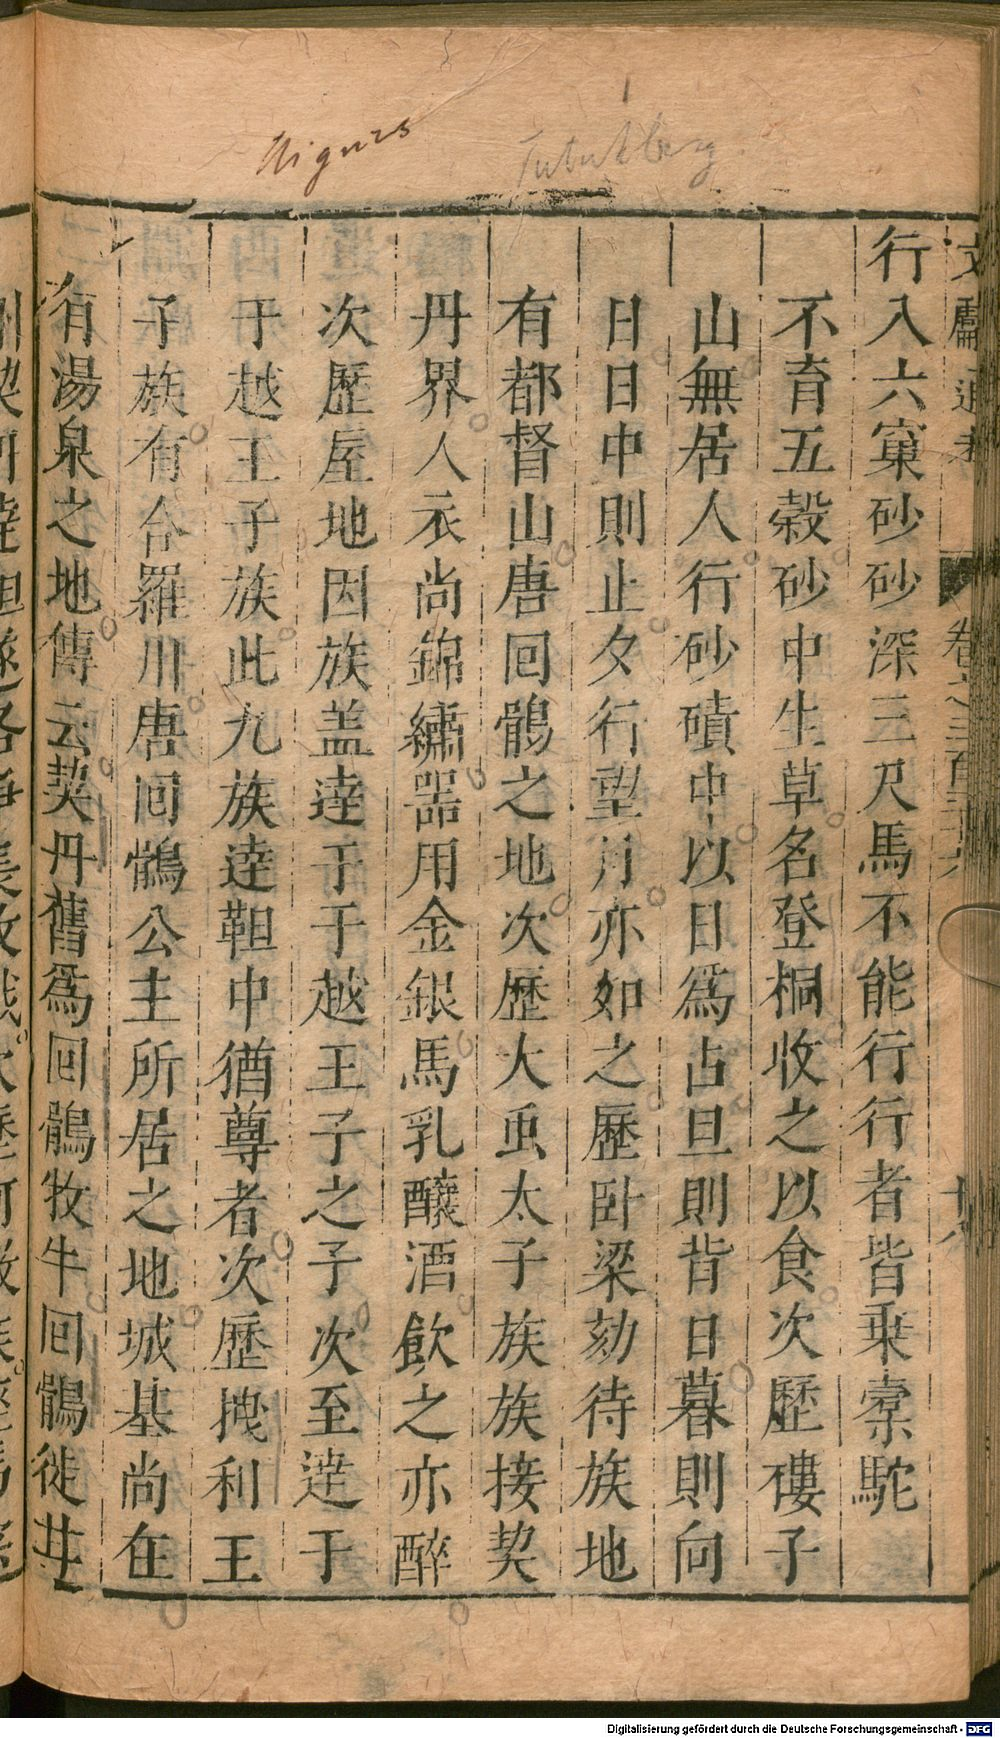 Uigurs
文獻通考 卷之三百三十六
行入六窠砂砂深三尺馬不能行行者皆乗槖駝
不育五糓砂中生草名登桐收之以食次歷樓子
山無居人行砂磧中以日爲占旦則背日暮則向
日日中則止夕行望月亦如之歷卧梁劾待族地
有都督山唐囘鶻之地次歷大虫太子族族接契
丹界人衣尚錦繡噐用金銀馬乳釀酒飲之亦醉
次歷屋地因族盖逹于于越王子之子次至逹于
于越王子族此九族逹靼中猶尊者次歷拽利王
子族有合羅川唐囘鶻公主所居之地城基尚在
有湯泉之地傳云契丹舊爲囘鶻牧牛囘鶻徙甘
Digitalisierung gefördert durch die Deutsche Forschungsgemeinschaft - DFG